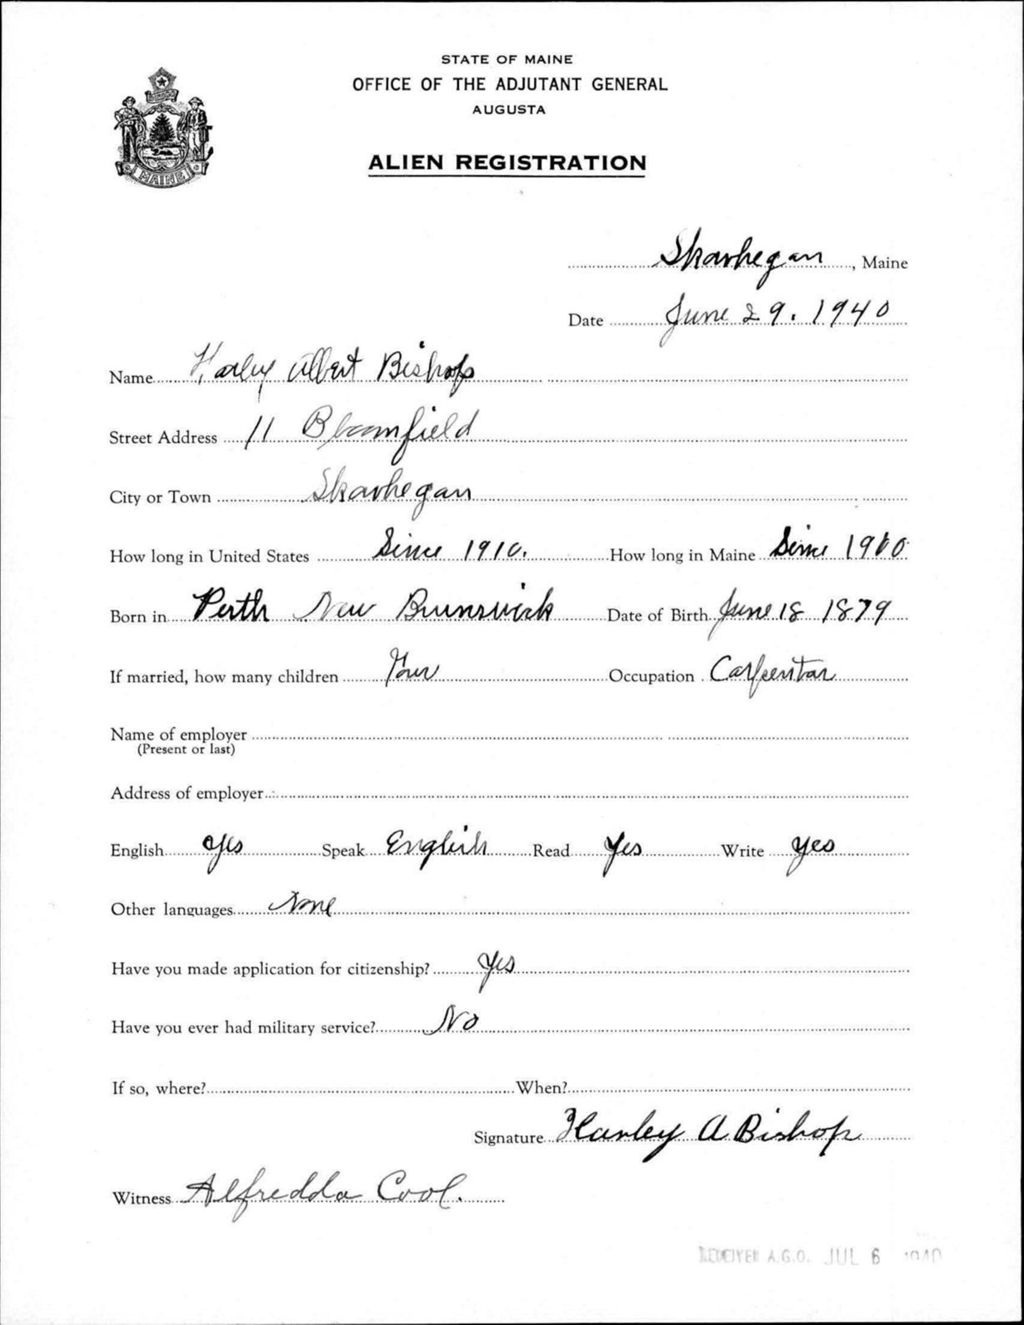 STATE OF MAINE
OFFICE OF THE ADJUTANT GENERAL
AUGUSTA
ALIEN REGISTRATION
MAINE
Skowhegan, Maine
Date June 29. 1940
Name Harley Albert Bishop
Street Address 11 Bloomfield
City or Town Skowhegan
How long in United States Since 1910. How long in Maine Since 1910
Born in Perth New Brunswick Date of Birth June 18 1879
If married, how many children Four Occupation Carpentar
Name of employer
(Present or last)
Address of employer
English Yes Speak English Read Yes Write Yes
Other languages None
Have you made application for citizenship? Yes
Have you ever had military service? No
If so, where? When?
Signature Harley A Bishop
Witness Alfredda Cool.
RECEIVED A.G.O. JUL 6 1940